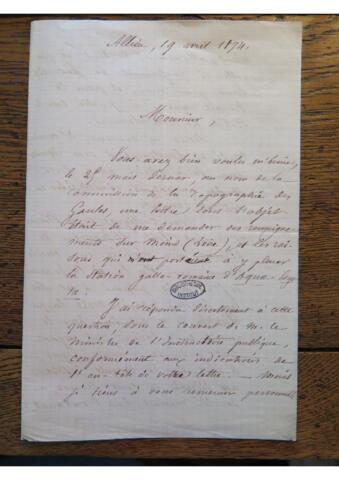 Allieu, 19 avril 1874.
Monsieur,
Vous avez bien voulu m'écrire,
le 25 mars dernier, au nom de la
commission de la topographie des
Gaules, une lettre dont l'objet
était de me demander des renseigne-
ments sur Moins (Loire), et les rai-
sons qui m'ont porté à y placer
la station gallo-romaine d'Aquae Sege-
tae.
BIBLIOTHEQUE
INSTITUT
J'ai répondu directement à cette
question, sous le couvert de M. le
Ministre de l'Instruction publique,
conformément aux indications de
l'en-tête de votre lettre. — mais
je tiens à vous remercier personnell